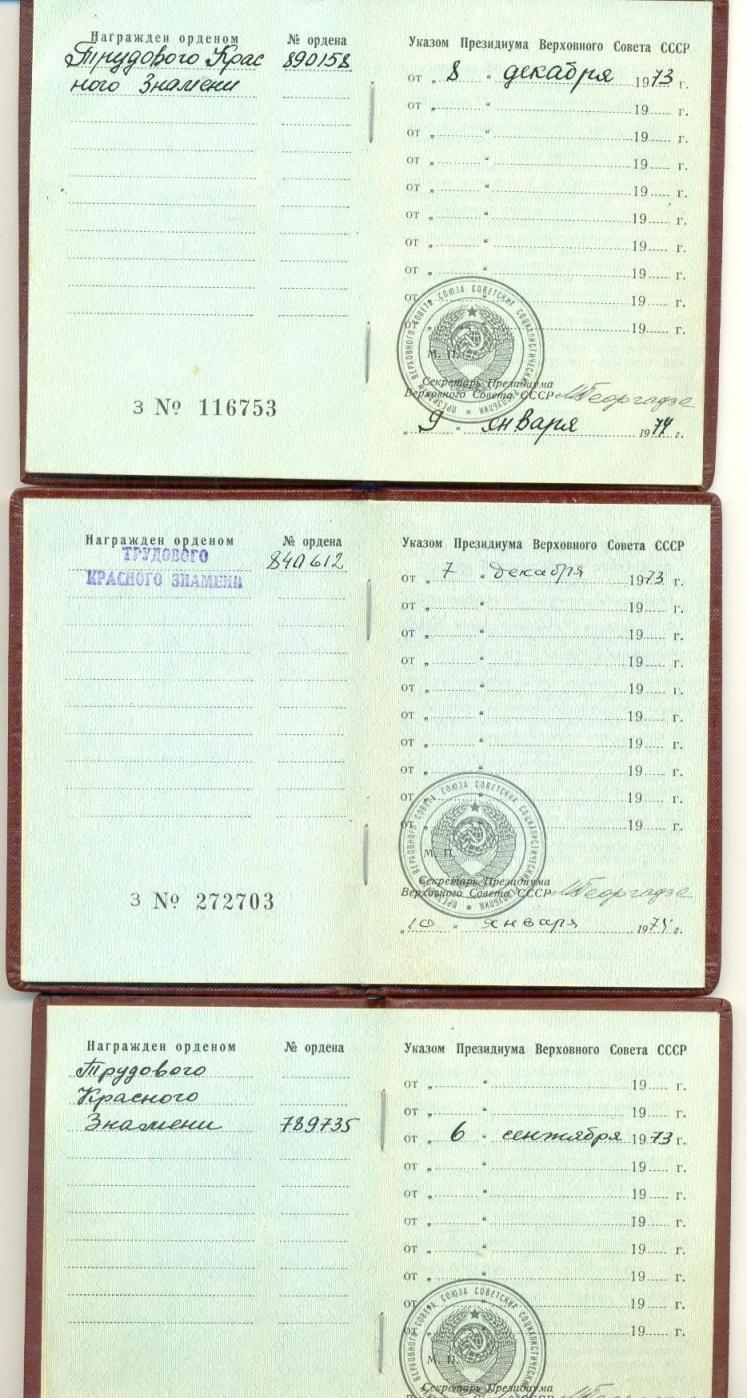 Награжден орденом № ордена
Трудового Крас 890158
ного Знамени
З № 116753
Указом Президиума Верховного Совета СССР
от „ 8 “ декабря 1973 г.
от „ “ 19 г.
от „ “ 19 г.
от „ “ 19 г.
от „ “ 19 г.
от „ “ 19 г.
от „ “ 19 г.
от „ “ 19 г.
от „ “ 19 г.
от „ “ 19 г.
ПРЕЗИДИУМ ВЕРХОВНОГО СОВЕТА СОЮЗА СОВЕТСКИХ СОЦИАЛИСТИЧЕСКИХ РЕСПУБЛИК
М. П.
Секретарь Президиума
Верховного Совета СССР МГеоргадзе
„ 9 “ января 1974 г.
Награжден орденом № ордена
ТРУДОВОГО 840612
КРАСНОГО ЗНАМЕНИ
З № 272703
Указом Президиума Верховного Совета СССР
от „ 7 “ декабря 1973 г.
от „ “ 19 г.
от „ “ 19 г.
от „ “ 19 г.
от „ “ 19 г.
от „ “ 19 г.
от „ “ 19 г.
от „ “ 19 г.
от „ “ 19 г.
от „ “ 19 г.
ПРЕЗИДИУМ ВЕРХОВНОГО СОВЕТА СОЮЗА СОВЕТСКИХ СОЦИАЛИСТИЧЕСКИХ РЕСПУБЛИК
М. П.
Секретарь Президиума
Верховного Совета СССР МГеоргадзе
„ 10 “ января 1974 г.
Награжден орденом № ордена
Трудового
Красного
Знамени 789735
Указом Президиума Верховного Совета СССР
от „ “ 19 г.
от „ “ 19 г.
от „ 6 “ сентября 1973 г.
от „ “ 19 г.
от „ “ 19 г.
от „ “ 19 г.
от „ “ 19 г.
от „ “ 19 г.
от „ “ 19 г.
от „ “ 19 г.
ВЕРХОВНОГО СОВЕТА СОЮЗА СОВЕТСКИХ СОЦИАЛИСТИЧЕСКИХ
М. П.
Секретарь Президиума